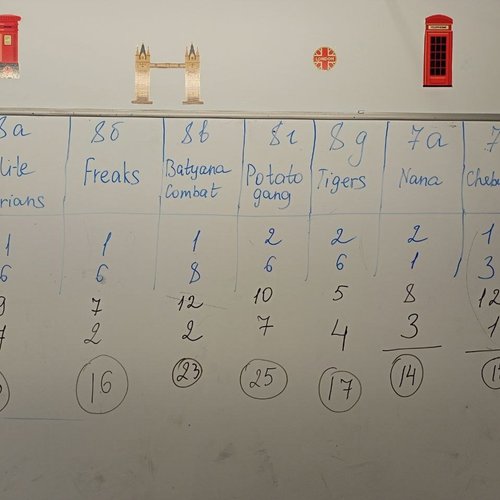 TELEPHONE
LONDON
8a 8б 8в 8г 8g 7a 7
Freaks Batyana Potato Tigers Nana Cheb
rians Combat gang
1 1 1 2 2 2 1
6 6 8 6 6 1 3
9 7 12 10 5 8 12
7 2 2 7 4 3 1
16 23 25 17 14